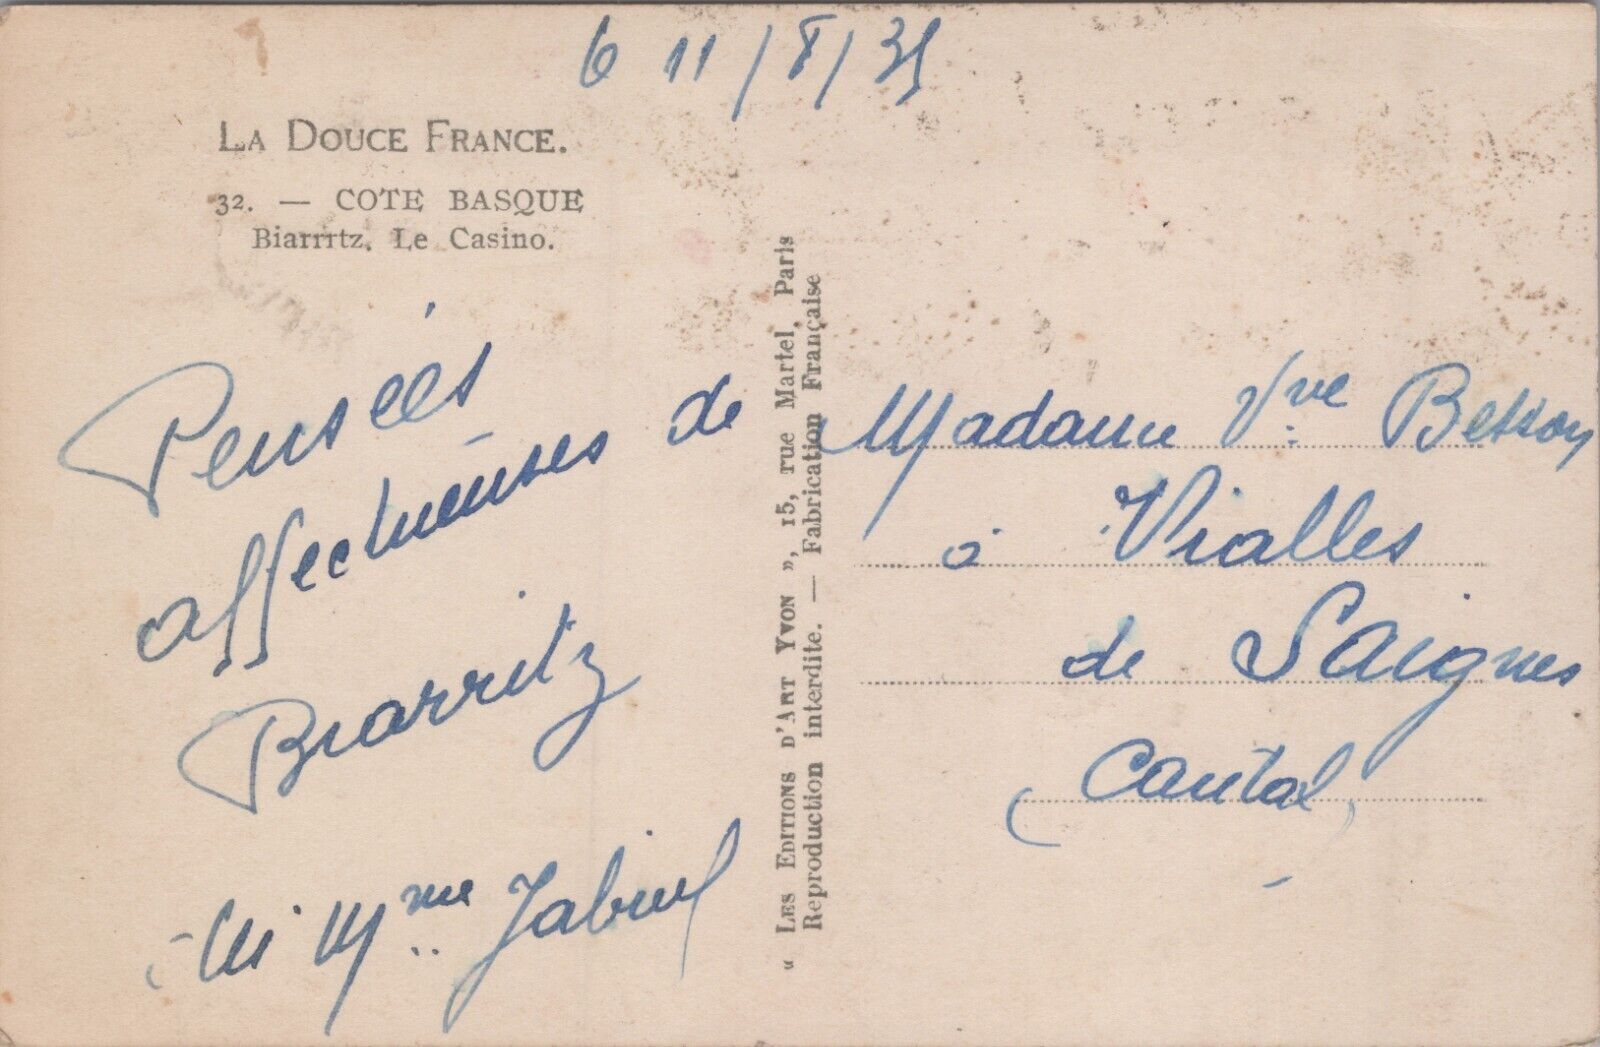 6 11/8/35
LA DOUCE FRANCE.
32. — COTE BASQUE
Biarrrtz. Le Casino.
Pensées
affectueuses de
Biarritz
Mme
« LES EDITIONS D'ART YVON », 15, rue Martel, Paris
Reproduction interdite. — Fabrication Française
Madame Vve Besson
à Vialles
de Saignes
(Cantal)